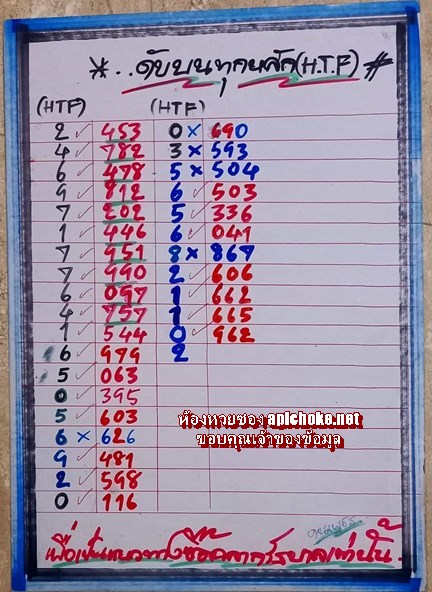 *..ดับบนทุกหลัก(H.T.F)#
(HTF) (HTF)
2 ✓ 453 0 × 690
4 ✓ 782 3 × 593
6 ✓ 478 5 × 504
9 ✓ 812 6 ✓ 503
7 ✓ 202 5 ✓ 336
1 ✓ 446 6 ✓ 041
7 ✓ 951 8 × 867
7 ✓ 990 2 ✓ 606
6 ✓ 097 1 ✓ 662
4 ✓ 757 1 ✓ 665
1 ✓ 544 0 ✓ 962
6 ✓ 979 2
5 ✓ 063
0 ✓ 395
5 ✓ 603
6 × 626
9 ✓ 481
2 ✓ 598
0 ✓ 116
ห้องหวยซอง apichoke.net
ขอบคุณเจ้าของข้อมูล
เพื่อเป็นแนวทางซื้อสลากรัฐบาลเท่านั้น.